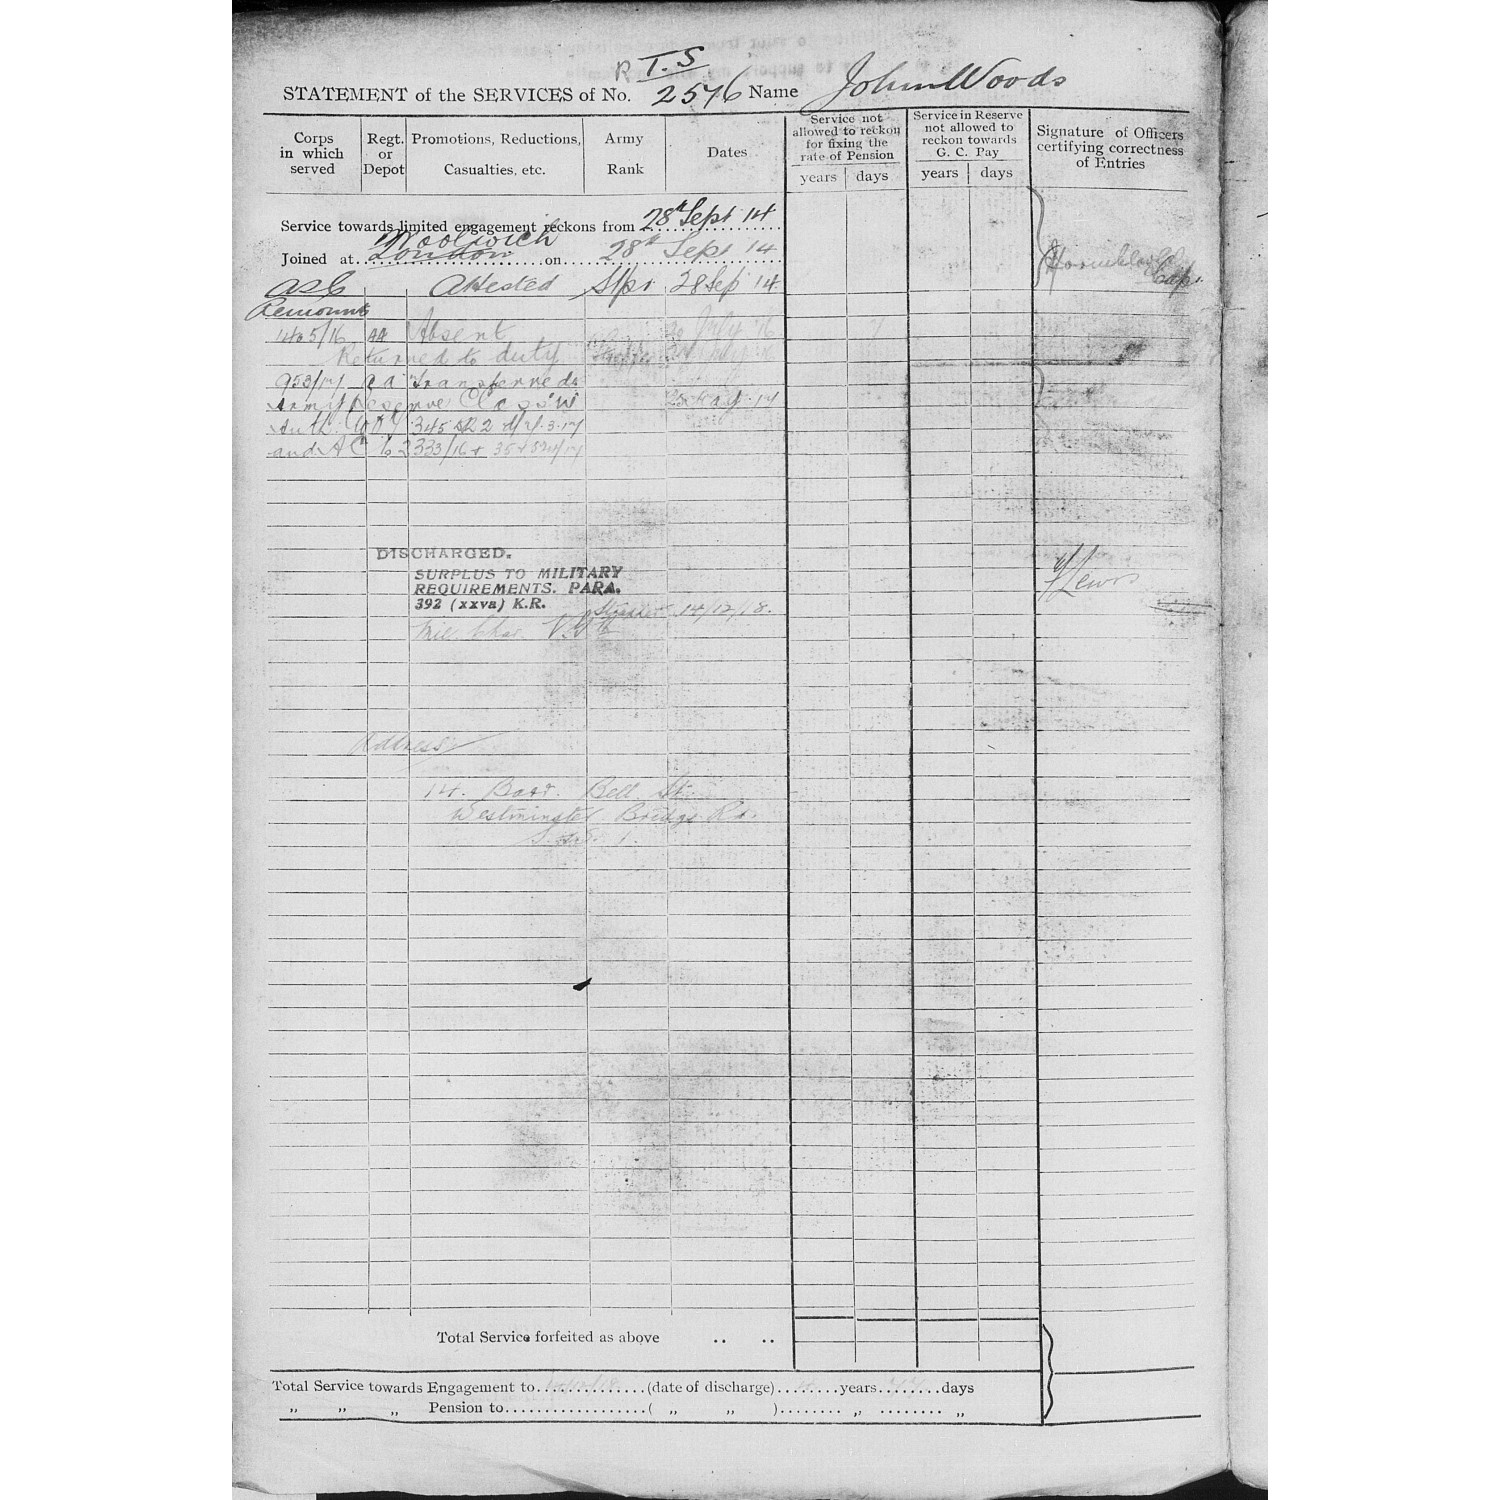 R T.S
STATEMENT of the SERVICES of No. 2576 Name John Woods
Corps in which served
Regt. or Depot
Promotions, Reductions, Casualties, etc.
Army Rank
Dates
Service not allowed to reckon for fixing the rate of Pension
years days
Service in Reserve not allowed to reckon towards G. C. Pay
years days
Signature of Officers certifying correctness of Entries
Service towards limited engagement reckons from 28th Sept 14
Woolwich
Joined at London on 28th Sept 14
ASC Attested 28 Sep 14
Remounts Capt.
1405/16 Absent July 16
Returned to duty
953/17 Transferred to
Army Reserve Class W May 17
Auth. 345
and A C 2333/16
DISCHARGED.
SURPLUS TO MILITARY
REQUIREMENTS. PARA.
392 (xxva) K.R. 14/12/18.
Lewis
Mil. Char. V.G
Address
14. Bell St.
Westminster Bridge Rd.
S.E. 1.
Total Service forfeited as above .. ..
Total Service towards Engagement to (date of discharge) years days
„ „ „ Pension to ( „ „ ) „ „